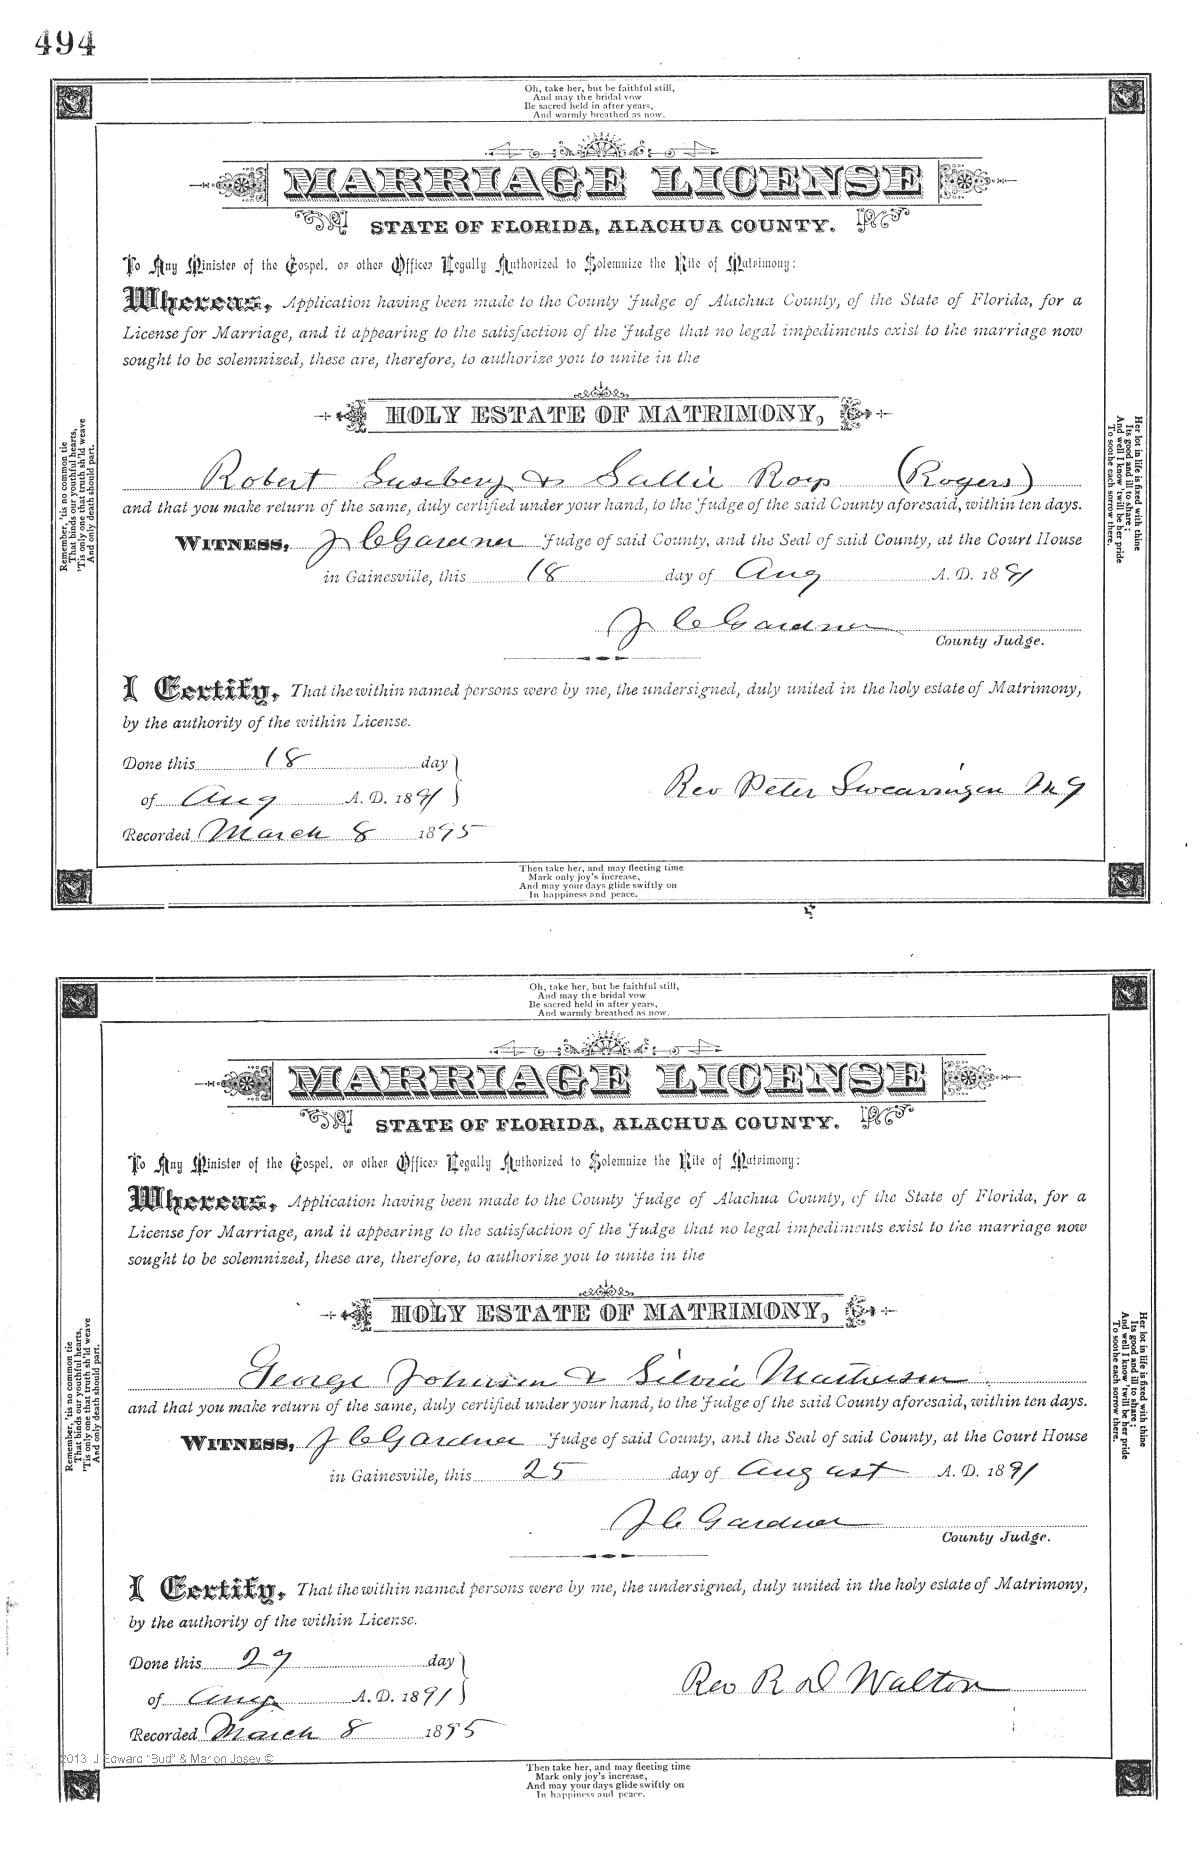 494
Oh, take her, but be faithful still,
And may the bridal vow
Be sacred held in after years,
And warmly breathed as now.
MARRIAGE LICENSE
STATE OF FLORIDA, ALACHUA COUNTY.
To Any Minister of the Gospel, or other Officer Legally Authorized to Solemnize the Rite of Matrimony:
Whereas, Application having been made to the County Judge of Alachua County, of the State of Florida, for a
License for Marriage, and it appearing to the satisfaction of the Judge that no legal impediments exist to the marriage now
sought to be solemnized, these are, therefore, to authorize you to unite in the
HOLY ESTATE OF MATRIMONY,
Robert & Sallie (Rogers)
and that you make return of the same, duly certified under your hand, to the Judge of the said County aforesaid, within ten days.
WITNESS, J C Gardner Judge of said County, and the Seal of said County, at the Court House
in Gainesville, this 18 day of Aug A. D. 1891
J C Gardner
County Judge.
I Certify, That the within named persons were by me, the undersigned, duly united in the holy estate of Matrimony,
by the authority of the within License.
Done this 18 day
of Aug A. D. 1891
Rev Peter Swearingen M G
Recorded March 8 1895
Remember, 'tis no common tie
That binds our youthful hearts,
'Tis only one that truth sh'ld weave
And only death should part.
Her lot in life is fixed with thine
Its good and ill to share;
And well I know 'twill be her pride
To soothe each sorrow there.
Then take her, and may fleeting time
Mark only joy's increase,
And may your days glide swiftly on
In happiness and peace.
Oh, take her, but be faithful still,
And may the bridal vow
Be sacred held in after years,
And warmly breathed as now.
MARRIAGE LICENSE
STATE OF FLORIDA, ALACHUA COUNTY.
To Any Minister of the Gospel, or other Officer Legally Authorized to Solemnize the Rite of Matrimony:
Whereas, Application having been made to the County Judge of Alachua County, of the State of Florida, for a
License for Marriage, and it appearing to the satisfaction of the Judge that no legal impediments exist to the marriage now
sought to be solemnized, these are, therefore, to authorize you to unite in the
HOLY ESTATE OF MATRIMONY,
George Johnson & Silvia Matherson
and that you make return of the same, duly certified under your hand, to the Judge of the said County aforesaid, within ten days.
WITNESS, J C Gardner Judge of said County, and the Seal of said County, at the Court House
in Gainesville, this 25 day of August A. D. 1891
J C Gardner
County Judge.
I Certify, That the within named persons were by me, the undersigned, duly united in the holy estate of Matrimony,
by the authority of the within License.
Done this 29 day
of Aug A. D. 1891
Rev R D Walton
Recorded March 8 1895
Remember, 'tis no common tie
That binds our youthful hearts,
'Tis only one that truth sh'ld weave
And only death should part.
Her lot in life is fixed with thine
Its good and ill to share;
And well I know 'twill be her pride
To soothe each sorrow there.
2013 J Edward "Bud" & Marion Josey ©
Then take her, and may fleeting time
Mark only joy's increase,
And may your days glide swiftly on
In happiness and peace.